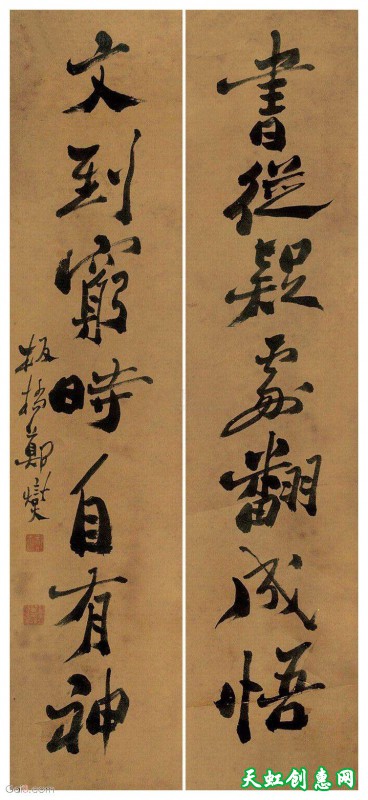 書從疑處翻成悟
文到窮時自有神
板橋鄭燮
天虹创惠网